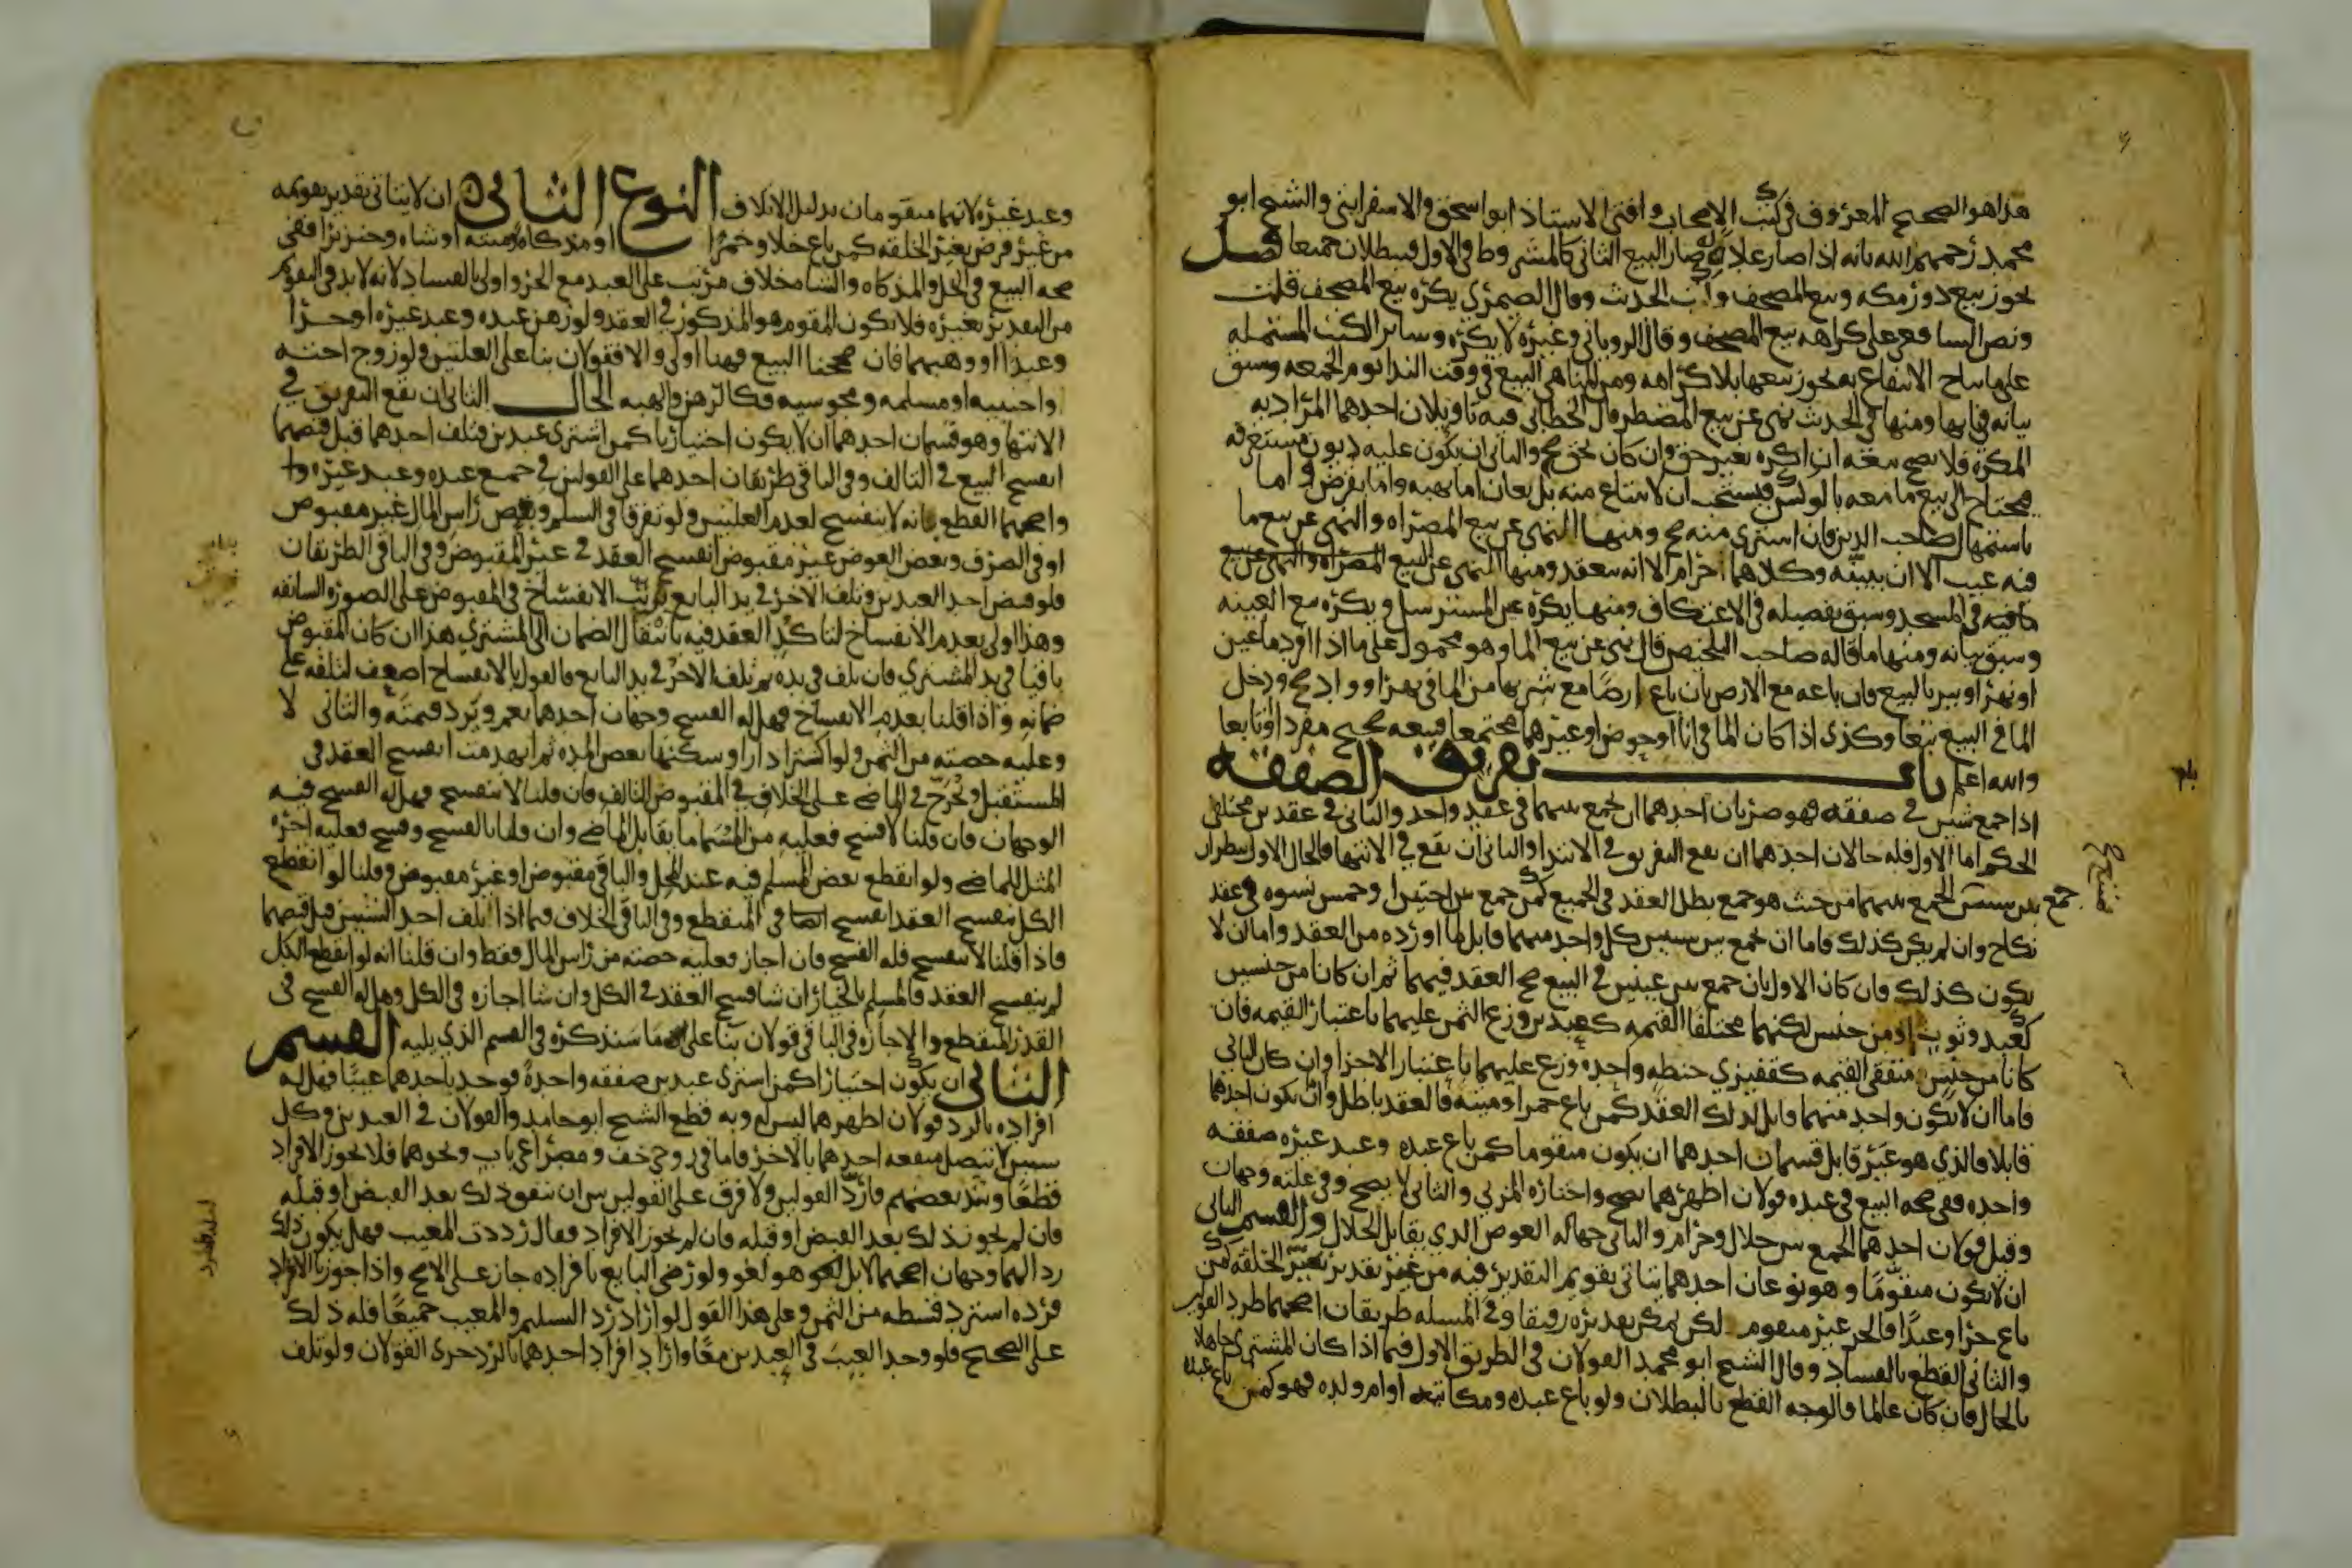 هذا هو الصحيح المعروف في كتب الاصحاب وافتى الاستاذ ابو اسحق الاسفرايني والشيخ ابو
محمد رحمهم الله بانه اذا صار علانه صار البيع الثاني كالمشروط في الاول فيبطلان جميعا فصل
يجوز بيع دور مكه وبيع المصحف وكتب الحدث وقال الصيمري يكره بيع المصحف قلت
ونص الشافعي على كراهه بيع المصحف وقال الروياني وغيره لا يكره وساير الكتب المشتمله
على مباح الانتفاع به يجوز بيعها بلا كراهه ومن المناهي البيع في وقت الندا يوم الجمعه وسبق
بيانه في بابها ومنها في الحدث نهى عن بيع المضطر قال الخطابي فيه تاويلان احدهما المراد به
المكره فلا يصح بيعه ان اكره بغير حق وان كان بحق صح والثاني ان يكون عليه ديون مستغرقه
يحتاج الى بيع ما معه بالوكس فيستحب ان لا يبتاع منه بل يعان اما بهبه واما بقرض واما
باستمهال صاحب الدين فان اشترى منه صح ومنها النهي عن بيع المصراه والنهي عن بيع ما
فيه عيب الا ان يبينه وكلاهما حرام الا انه ينعقد ومنها النهي عن البيع
في المسجد وسبق تفصيله في الاعتكاف ومنها يكره غبن المسترسل ويكره بيع العينه
وسبق بيانه ومنها ما قاله صاحب التلخيص قال نهى عن بيع الما وهو محمول على ما اذا افرد ما عين
او نهر او بير بالبيع فان باعه مع الارض بان باع ارضا مع شربها من الما في نهر او واد صح ودخل
الما في البيع تبعا وكذى اذا كان الما في انا او حوض او غيرهما مجتمعا فبيعه صحيح مفردا وتابعا
والله اعلم باب تفريق الصفقه
اذا جمع شيئين في صفقه فهو ضربان احدهما ان يجمع بينهما في عقد واحد والثاني في عقدين مختلفي
الحكم اما الاول فله حالان احدهما ان يقع التفريق في الابتدا والثاني ان يقع في الانتها فالحال الاول ينظر ان
جمع بين شيئين الجمع بينهما من حيث هو جمع بطل العقد في الجميع كمن جمع بين اختين او خمس نسوه في عقد
نكاح وان لم يكن كذلك فاما ان يجمع بين شيئين كل واحد منهما قابل لما اورده من العقد واما ان لا
يكون كذلك فان كان الاول بان جمع بين عينين في البيع صح العقد فيهما ثم ان كانا من جنسين
كعبد وثوب او من جنس لكنهما مختلفا القيمه كعبدين وزع الثمن عليهما باعتبار القيمه فان
كانا من جنس متفقي القيمه كقفيزي حنطه واحده وزع عليهما باعتبار الاجزا وان كان الثاني
فاما ان لا يكون واحد منهما قابلا لذلك العقد كمن باع خمرا وميته فالعقد باطل واما ان يكون احدهما
قابلا فالذي هو غير قابل قسمان احدهما ان يكون متقوما كمن باع عبده وعبد غيره صفقه
واحده ففي صحه البيع في عبده قولان اظهرهما يصح واختاره المزني والثاني لا يصح وفي علته وجهان
وقيل قولان احدهما الجمع بين حلال وحرام والثاني جهاله العوض الذي يقابل الحلال والقسم الثاني
ان لا يكون متقوما وهو نوعان احدهما يتاتى تقويم التقدير فيه من غير تقدير تغير الخلقه كمن
باع حرا وعبدا فالحر غير متقوم لكن يمكن تقديره رقيقا وفي المسله طريقان اصحهما طرد القولين
والثاني القطع بالفساد وقال الشيخ ابو محمد القولان في الطريق الاول فيما اذا كان المشتري جاهلا
بالحال فان كان عالما فالوجه القطع بالبطلان ولو باع عبده ومكاتبه او ام ولده فهو كمن باع عبده
وعبد غيره لانهما متقومان بدليل الاتلاف النوع الثاني ان لا يتاتى تقدير تقويمه
من غير فرض تغير الخلقه كمن باع خلا وخمرا او مذكاه وميته او شاه وخنزيرا ففي
صحه البيع في الخل والمذكاه والشا خلاف مرتب على العبد مع الحر واولى بالفساد لانه لا بد في التقويم
من التقدير بغيره فلا يكون المقوم هو المذكور في العقد ولو رهن عبده وعبد غيره او حرا
وعبدا او وهبهما فان صححنا البيع فهنا اولى والا فقولان بنا على العلتين ولو زوج اخته
واجنبيه او مسلمه ومجوسيه فكالرهن والهبه الحال الثاني ان يقع التفريق في
الانتها وهو قسمان احدهما ان لا يكون اختياريا كمن اشترى عبدين فتلف احدهما قبل قبضهما
انفسخ البيع في التالف وفي الباقي طريقان احدهما على القولين في جمع عبده وعبد غيره وا
واصحهما القطع بانه لا ينفسخ لعدم العلتين ولو تفرقا في السلم وبعض راس المال غير مقبوض
او في الصرف وبعض العوض غير مقبوض انفسخ العقد في غير المقبوض وفي الباقي الطريقان
فلو قبض احد العبدين وتلف الاخر في يد البايع ترتب الانفساخ في المقبوض على الصوره السابقه
وهذا اولى بعدم الانفساخ لتاكد العقد فيه بانتقال الضمان الى المشتري هذا ان كان المقبوض
باقيا في يد المشتري فان تلف في يده ثم تلف الاخر في يد البايع فالقول بالانفساخ اضعف لتلفه على
ضمانه واذا قلنا بعدم الانفساخ فهل له الفسخ وجهان احدهما نعم ويرد قيمته والثاني لا
وعليه حصته من الثمن ولو اكترا دارا وسكنها بعض المده ثم انهدمت انفسخ العقد في
المستقبل وتخرج في الماضي على الخلاف في المقبوض التالف فان قلنا لا ينفسخ فهل له الفسخ فيه
الوجهان فان قلنا لا فسخ فعليه من المسما ما يقابل الماضي وان قلنا بالفسخ وفسخ فعليه اجره
المثل للماضي ولو انقطع بعض المسلم فيه عند المحل والباقي مقبوض او غير مقبوض وقلنا لو انقطع
الكل ينفسخ العقد انفسخ في المنقطع وفي الباقي الخلاف فيما اذا تلف احد الشيئين قبل قبضهما
فاذا قلنا لا ينفسخ فله الفسخ فان اجاز فعليه حصته من راس المال فقط وان قلنا انه لو انقطع الكل
لم ينفسخ العقد فالمسلم بالخيار ان شا فسخ العقد في الكل وان شا اجازه في الكل وهل له الفسخ في
القدر المنقطع والاجازه في الباقي قولان بنا على ما سنذكره في القسم الذي يليه القسم
الثاني ان يكون اختيارا كمن اشترى عبدين صفقه واحدة فوجد باحدهما عيبا فهل له
افراده بالرد قولان اظهرهما ليس له وبه قطع الشيخ ابو حامد والقولان في العبدين وكل
شيئين لا تتصل منفعه احدهما بالاخر فاما في زوجي خف ومصراعي باب ونحوهما فلا يجوز الافراد
قطعا وشذ بعضهم فارد القولين ولا فرق على القولين بين ان يتفق ذلك بعد القبض او قبله
فان لم يجوز ذلك بعد القبض او قبله فان لم يجوز الافراد فقال رددت المعيب فهل يكون ذلك
ردا لهما وجهان اصحهما لا بل هو لغو ولو رضي البايع بافراده جاز على الاصح واذا جوزنا الافراد
فرده استرد قسطه من الثمن وعلى هذا القول لو اراد رد السليم والمعيب جميعا فله ذلك
على الصحيح فلو وجد العيب في العبدين معا واراد افراد احدهما بالرد جرى القولان ولو تلف